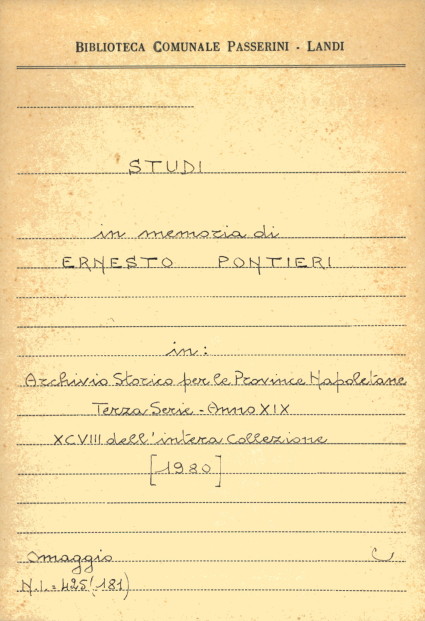 BIBLIOTECA COMUNALE PASSERINI - LANDI
STUDI
in memoria di
ERNESTO PONTIERI
in:
Archivio Storico per le Province Napoletane
Terza Serie - Anno XIX
XCVIII dell'intera Collezione
[1980]
omaggio C
N.I. = 425(181)